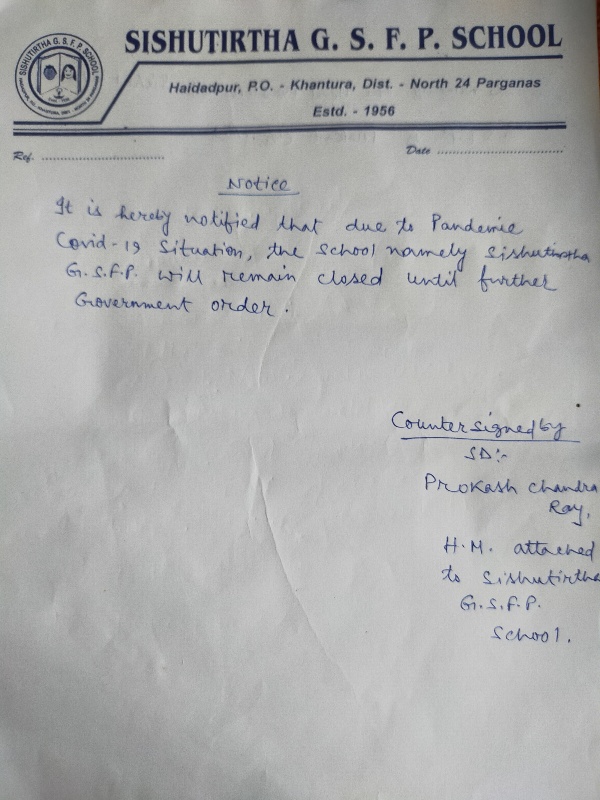 SISHUTIRTHA G. S. F. P. SCHOOL
Haidadpur, P.O. - Khantura, Dist. - North 24 Parganas
Estd. - 1956
Ref. ..................................
Date ..................................
Notice
It is hereby notified that due to Pandemic
Covid-19 situation, the school namely Sishutirtha
G.S.F.P. will remain closed until further
Government order.
Countersigned by
SD:-
Prokash Chandra
Ray,
H.M. attached
to Sishutirtha
G.S.F.P.
School.